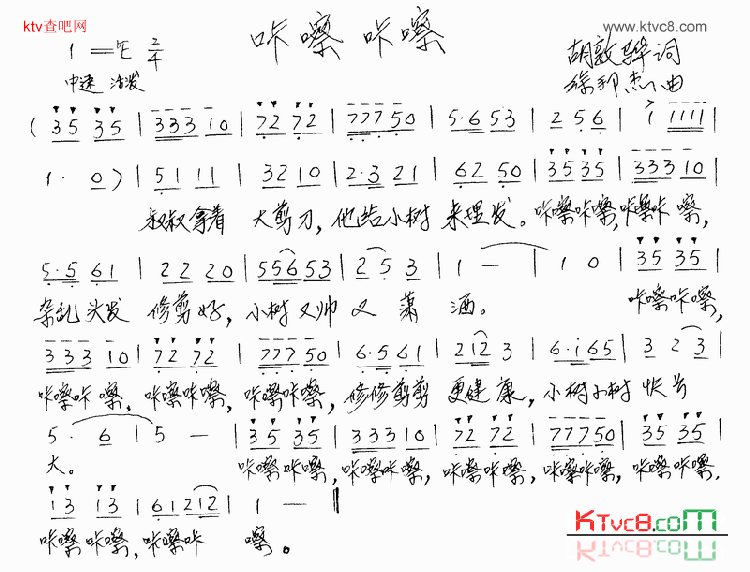 ktv查吧网
www.ktvc8.com
咔嚓咔嚓
1=E 2/4
中速 活发
胡敦骅 词
曲
( 35 35 | 333 10 | 72 72 | 777 50 | 5·6 53 | 2 56 | i iiii |
1· 0) | 51 11 | 32 10 | 2·3 21 | 62 50 | 35 35 | 333 10 |
叔叔拿着 大剪刀，他给小树 来理发。咔嚓咔嚓，咔嚓咔 嚓，
5·5 61 | 22 20 | 556 53 | 2 5 3 | 1 — | 1 0 | 35 35 |
杂乱头发 修剪好，小树又帅又 萧 洒。 咔嚓咔嚓，
333 10 | 72 72 | 777 50 | 6·5 61 | 212 3 | 6·i 65 | 3 2 3 |
咔嚓咔 嚓，咔嚓咔嚓，咔嚓咔嚓，修修剪剪 更健康，小树小树 快长
5· 6 | 5 — | 35 35 | 333 10 | 72 72 | 777 50 | 35 35 |
大。 咔嚓咔嚓，咔嚓咔嚓，咔嚓咔嚓，咔嚓咔嚓，咔嚓咔嚓，
13 13 | 61 212 | 1 — ‖
咔嚓咔嚓，咔嚓咔 嚓。
KTvc8.com